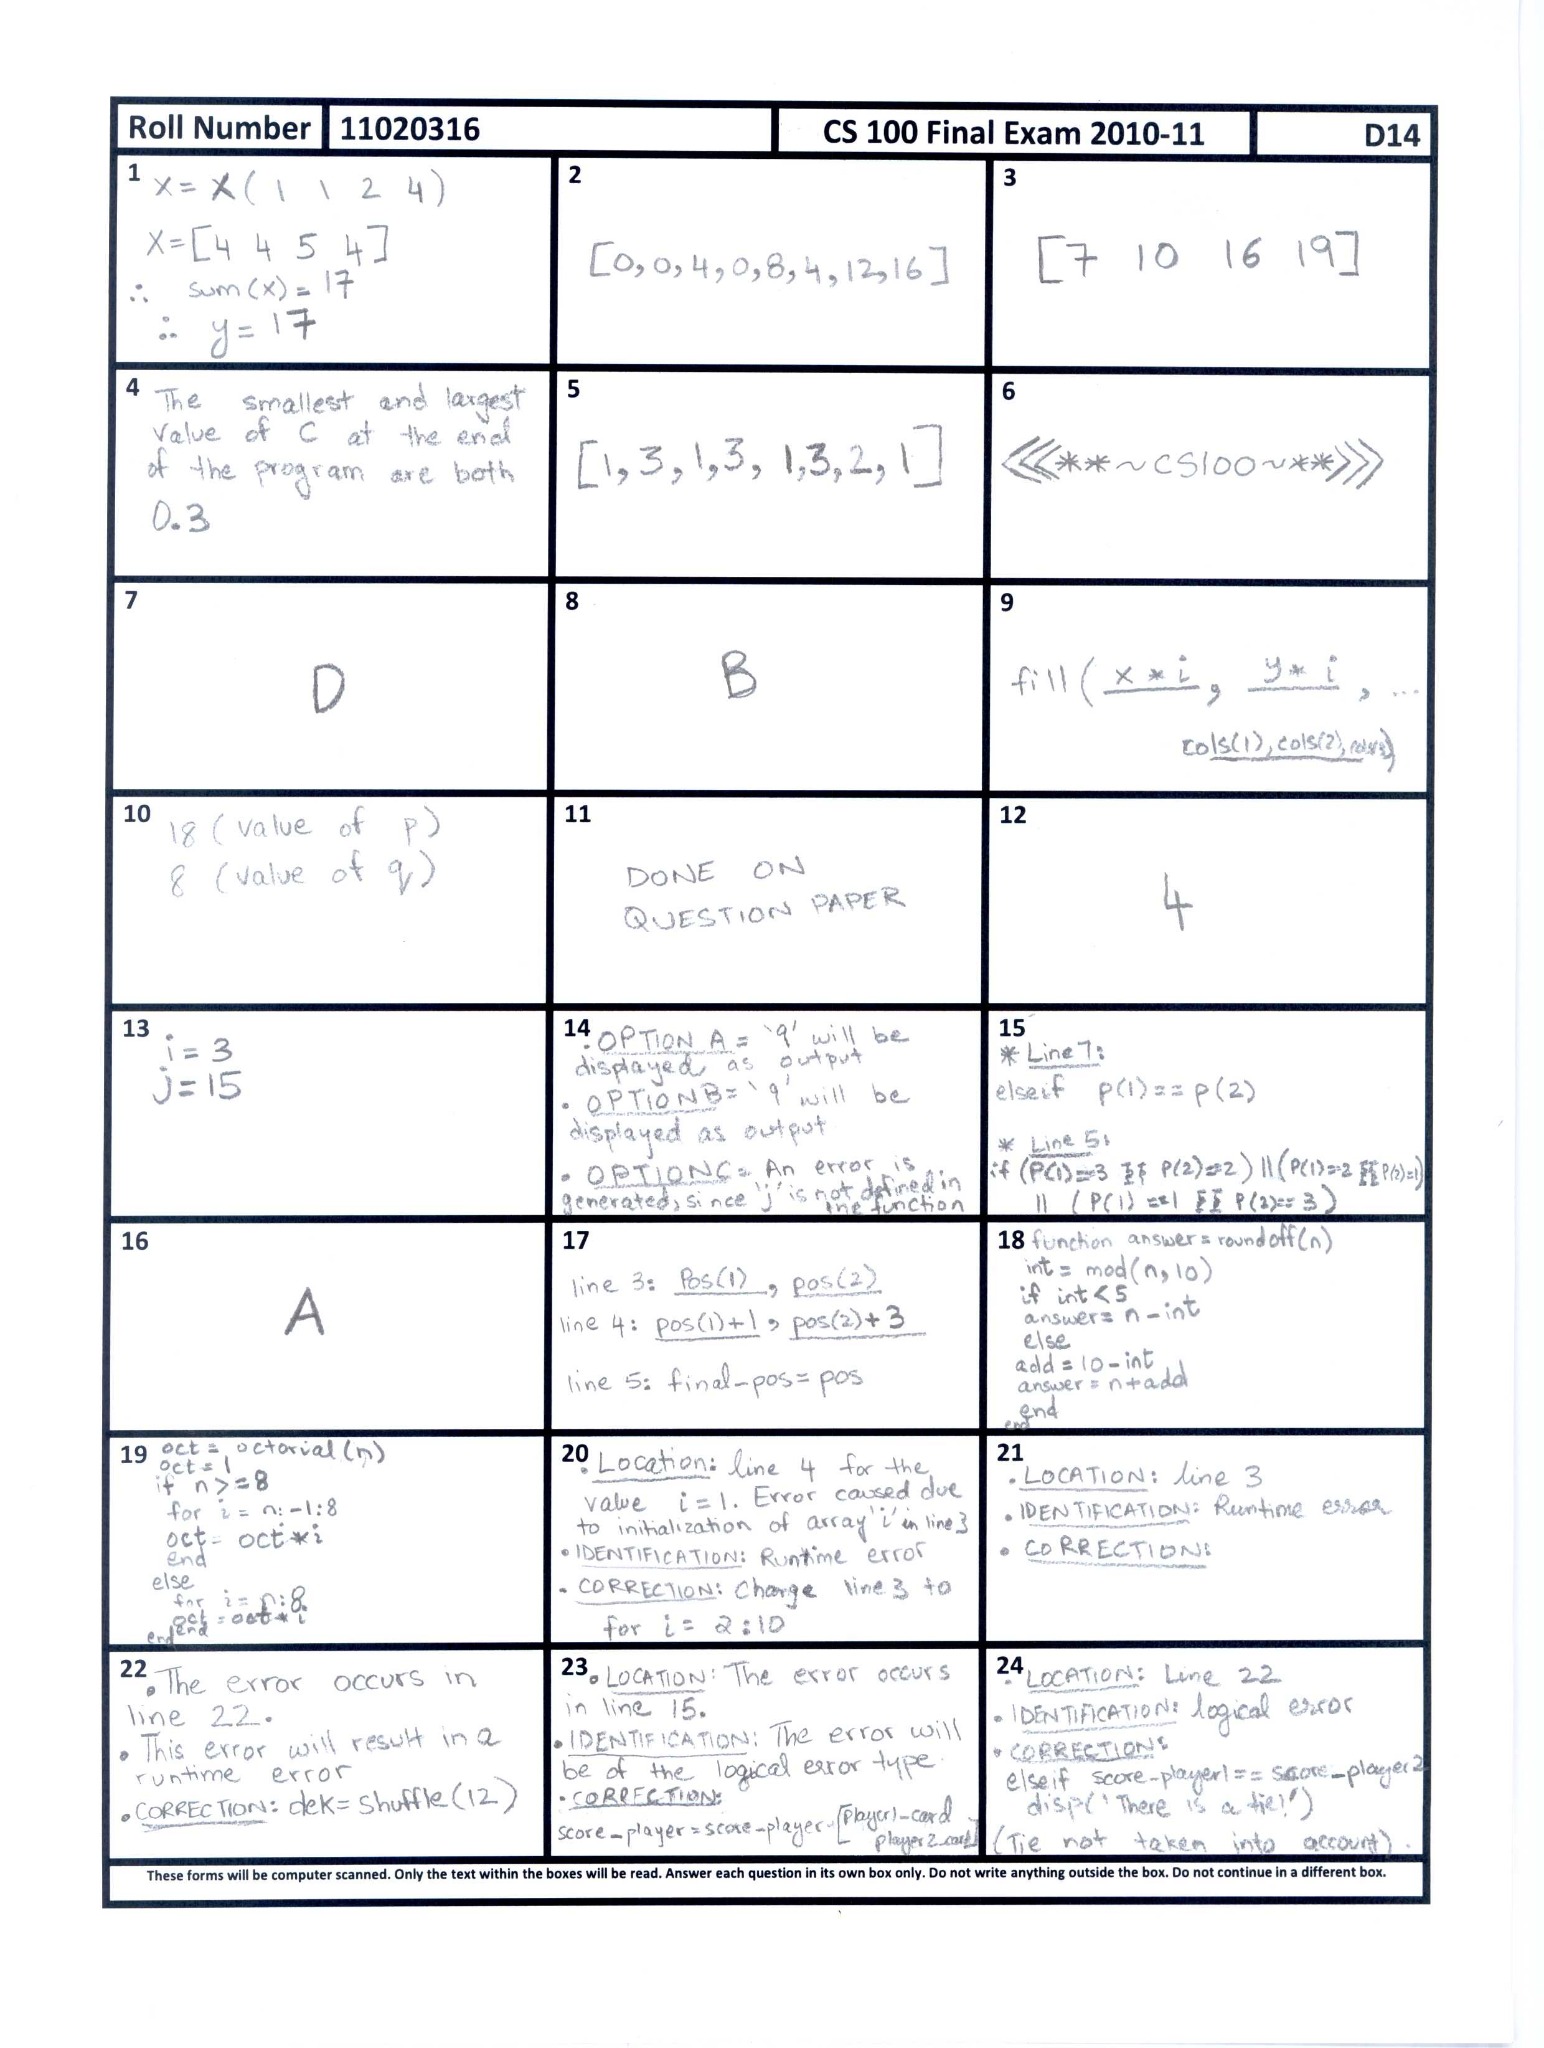 Roll Number 11020316 CS 100 Final Exam 2010-11 D14
1 x = x( 1 1 2 4)
x=[4 4 5 4]
∴ sum(x) = 17
∴ y= 17
2
[0,0,4,0,8,4,12,16]
3
[7 10 16 19]
4 The smallest and largest
value of C at the end
of the program are both
0.3
5
[1,3,1,3,1,3,2,1]
6
<<<**~CS100~**>>>
7
D
8
B
9
fill( x*i, y*i, ...
cols(1), cols(2), cols(3))
10 18 (value of p)
8 (value of q)
11
DONE ON
QUESTION PAPER
12
4
13
i = 3
j = 15
14 • OPTION A = '9' will be
displayed as output
• OPTION B= '9' will be
displayed as output
• OPTION C= An error is
generated, since 'j' is not defined in
the function
15
* Line 7:
elseif p(1)==p(2)
* Line 5:
if (P(1)==3 && P(2)==2) || (P(1)==2 && P(2)=1)
|| (P(1)==1 && P(2)==3)
16
A
17
line 3: Pos(1), pos(2)
line 4: pos(1)+1, pos(2)+3
line 5: final-pos= pos
18 function answer = roundoff(n)
int = mod(n,10)
if int<5
answer= n-int
else
add = 10-int
answer = n+add
end
end
19 oct = octorial(n)
oct = 1
if n>=8
for i = n:-1:8
oct= oct*i
end
else
for i= n:8
oct = oct*i
end
end
20 • Location: line 4 for the
value i=1. Error caused due
to initialization of array 'i' in line 3
• IDENTIFICATION: Runtime error
• CORRECTION: Change line 3 to
for i = 2:10
21
• LOCATION: line 3
• IDENTIFICATION: Runtime error
• CORRECTION:
22 • The error occurs in
line 22.
• This error will result in a
runtime error
• CORRECTION: dek= shuffle(12)
23 • LOCATION: The error occurs
in line 15.
• IDENTIFICATION: The error will
be of the logical error type.
• CORRECTION:
score_player = score_player-[player1-card
player2_card]
24 • LOCATION: Line 22
• IDENTIFICATION: logical error
• CORRECTION:
elseif score-player1== score_player2
disp('There is a tie!')
(Tie not taken into account).
These forms will be computer scanned. Only the text within the boxes will be read. Answer each question in its own box only. Do not write anything outside the box. Do not continue in a different box.